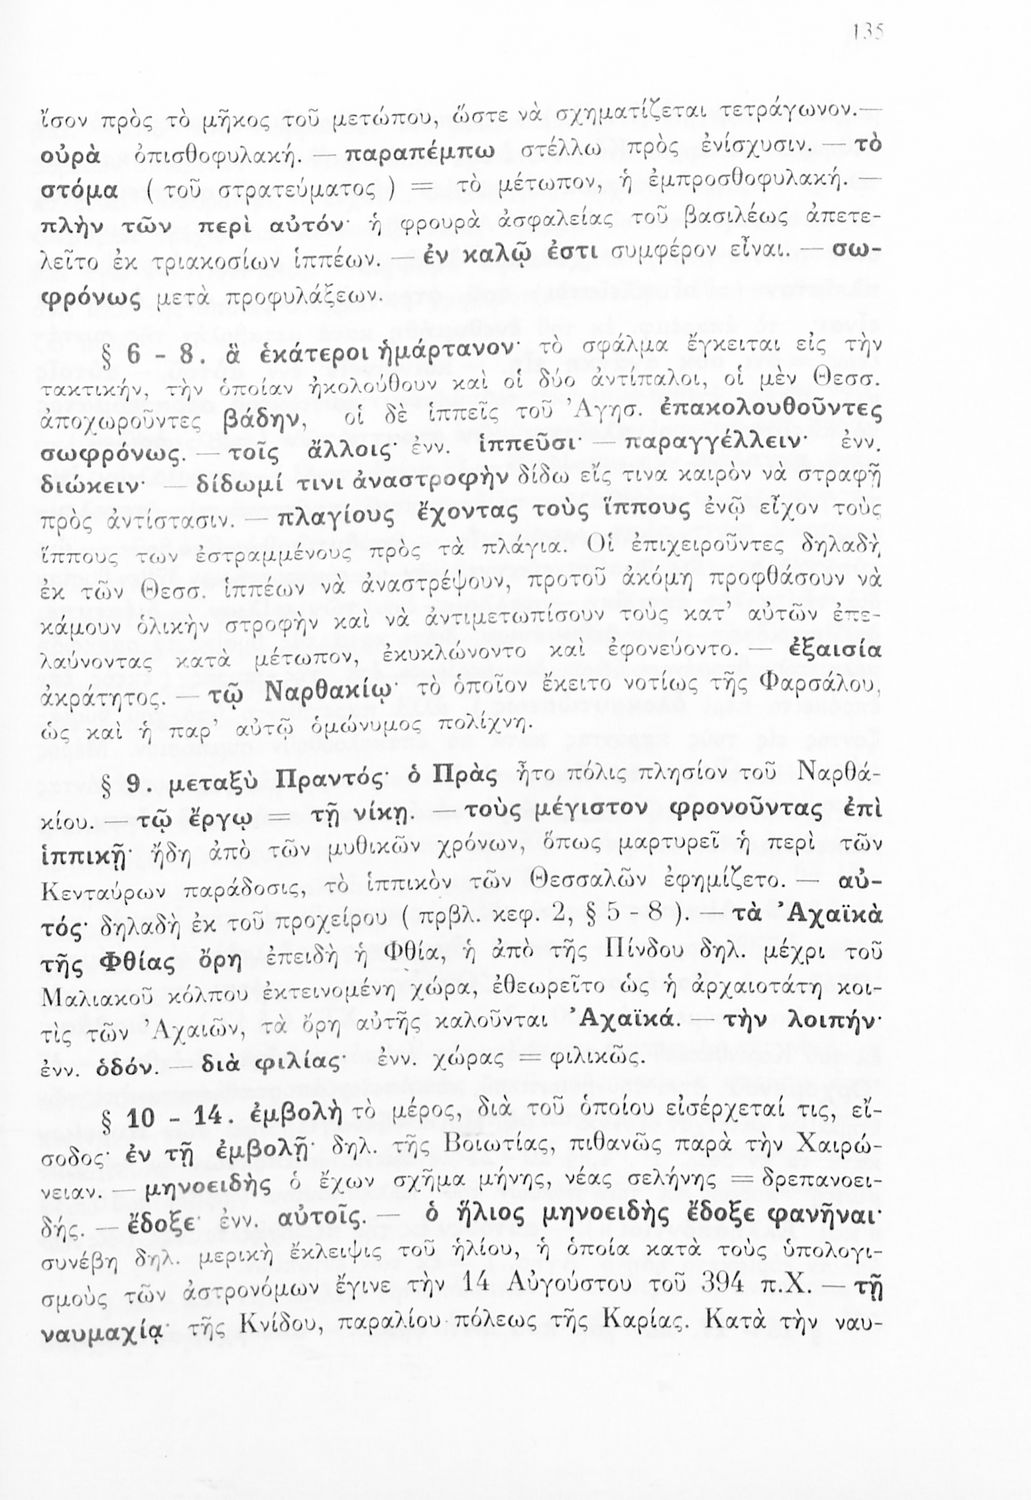 135
ἴσον πρὸς τὸ μῆκος τοῦ μετώπου, ὥστε νὰ σχηματίζεται τετράγωνον.—
οὐρὰ ὀπισθοφυλακή. — παραπέμπω στέλλω πρὸς ἐνίσχυσιν. — τὸ
στόμα ( τοῦ στρατεύματος ) = τὸ μέτωπον, ἡ ἐμπροσθοφυλακή. —
πλὴν τῶν περὶ αὐτόν· ἡ φρουρὰ ἀσφαλείας τοῦ βασιλέως ἀπετε-
λεῖτο ἐκ τριακοσίων ἱππέων. — ἐν καλῷ ἐστι συμφέρον εἶναι. — σω-
φρόνως μετὰ προφυλάξεων.
§ 6 - 8. ἃ ἑκάτεροι ἡμάρτανον· τὸ σφάλμα ἔγκειται εἰς τὴν
τακτικήν, τὴν ὁποίαν ἠκολούθουν καὶ οἱ δύο ἀντίπαλοι, οἱ μὲν Θεσσ.
ἀποχωροῦντες βάδην, οἱ δὲ ἱππεῖς τοῦ Ἀγησ. ἐπακολουθοῦντες
σωφρόνως. — τοῖς ἄλλοις· ἐνν. ἱππεῦσι· — παραγγέλλειν· ἐνν.
διώκειν· — δίδωμί τινι ἀναστροφὴν δίδω εἴς τινα καιρὸν νὰ στραφῇ
πρὸς ἀντίστασιν. — πλαγίους ἔχοντας τοὺς ἵππους ἐνῷ εἶχον τοὺς
ἵππους των ἐστραμμένους πρὸς τὰ πλάγια. Οἱ ἐπιχειροῦντες δηλαδὴ
ἐκ τῶν Θεσσ. ἱππέων νὰ ἀναστρέψουν, προτοῦ ἀκόμη προφθάσουν νὰ
κάμουν ὁλικὴν στροφὴν καὶ νὰ ἀντιμετωπίσουν τοὺς κατ’ αὐτῶν ἐπε-
λαύνοντας κατὰ μέτωπον, ἐκυκλώνοντο καὶ ἐφονεύοντο. — ἐξαισία
ἀκράτητος. — τῷ Ναρθακίῳ· τὸ ὁποῖον ἔκειτο νοτίως τῆς Φαρσάλου,
ὡς καὶ ἡ παρ’ αὐτῷ ὁμώνυμος πολίχνη.
§ 9. μεταξὺ Πραντός· ὁ Πρὰς ἦτο πόλις πλησίον τοῦ Ναρθά-
κίου. — τῷ ἔργῳ = τῇ νίκῃ. — τοὺς μέγιστον φρονοῦντας ἐπὶ
ἱππικῇ· ἤδη ἀπὸ τῶν μυθικῶν χρόνων, ὅπως μαρτυρεῖ ἡ περὶ τῶν
Κενταύρων παράδοσις, τὸ ἱππικὸν τῶν Θεσσαλῶν ἐφημίζετο. — αὐ-
τός· δηλαδὴ ἐκ τοῦ προχείρου ( πρβλ. κεφ. 2, § 5 - 8 ). — τὰ Ἀχαϊκὰ
τῆς Φθίας ὄρη ἐπειδὴ ἡ Φθία, ἡ ἀπὸ τῆς Πίνδου δηλ. μέχρι τοῦ
Μαλιακοῦ κόλπου ἐκτεινομένη χώρα, ἐθεωρεῖτο ὡς ἡ ἀρχαιοτάτη κοι-
τὶς τῶν Ἀχαιῶν, τὰ ὄρη αὐτῆς καλοῦνται Ἀχαϊκά. — τὴν λοιπήν·
ἐνν. ὁδόν. — διὰ φιλίας· ἐνν. χώρας = φιλικῶς.
§ 10 - 14. ἐμβολὴ τὸ μέρος, διὰ τοῦ ὁποίου εἰσέρχεταί τις, εἴ-
σοδος· ἐν τῇ ἐμβολῇ· δηλ. τῆς Βοιωτίας, πιθανῶς παρὰ τὴν Χαιρώ-
νειαν. — μηνοειδὴς ὁ ἔχων σχῆμα μήνης, νέας σελήνης = δρεπανοει-
δής. — ἔδοξε· ἐνν. αὐτοῖς. — ὁ ἥλιος μηνοειδὴς ἔδοξε φανῆναι·
συνέβη δηλ. μερικὴ ἔκλειψις τοῦ ἡλίου, ἡ ὁποία κατὰ τοὺς ὑπολογι-
σμοὺς τῶν ἀστρονόμων ἔγινε τὴν 14 Αὐγούστου τοῦ 394 π.Χ. — τῇ
ναυμαχίᾳ· τῆς Κνίδου, παραλίου πόλεως τῆς Καρίας. Κατὰ τὴν ναυ-